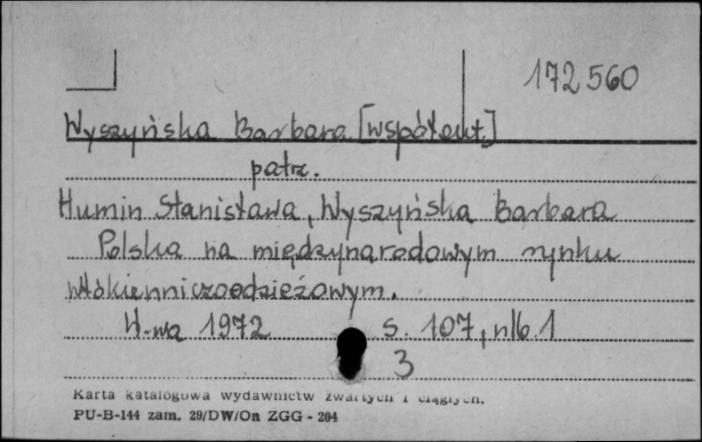 172560
Wyszyńska Barbara [współaut.]
patrz.
Humin Stanisława, Wyszyńska Barbara
Polska na międzynarodowym rynku
włókienniczoodzieżowym.
W-wa 1972 s. 107, nlb. 1
3
Karta katalogowa wydawnictw zwartych i ciągłych.
PU-B-144 zam. 29/DW/On ZGG - 204